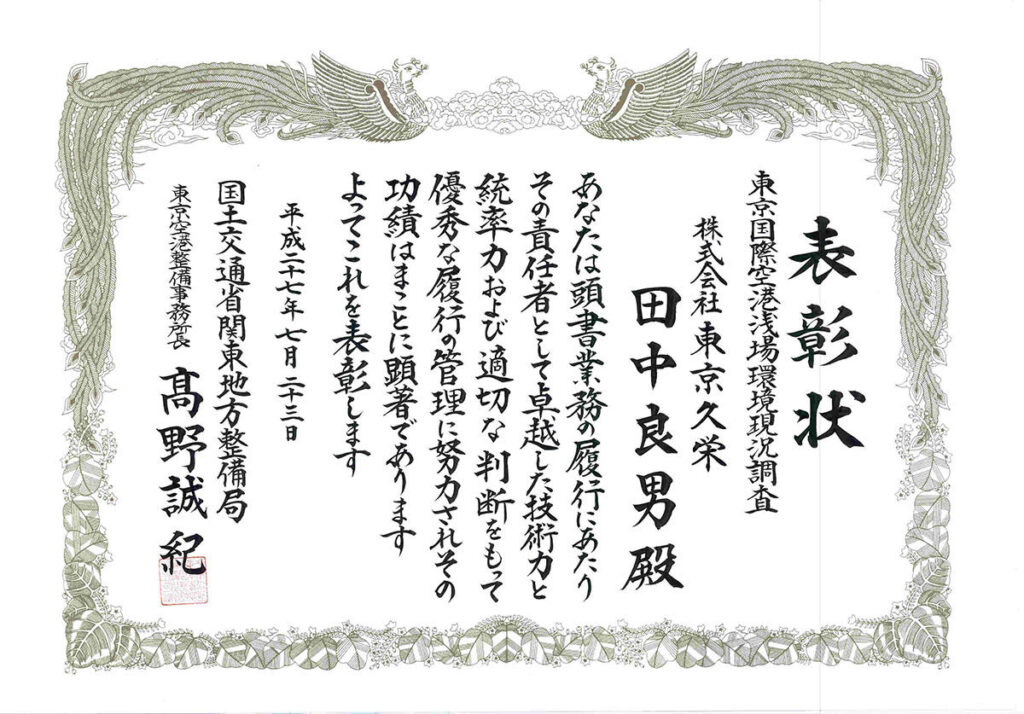 表彰状
東京国際空港浅場環境現況調査
株式会社東京久栄
田中良男殿
あなたは頭書業務の履行にあたり
その責任者として卓越した技術力と
統率力および適切な判断をもって
優秀な履行の管理に努力されその
功績はまことに顕著であります
よってこれを表彰します
平成二十七年七月二十三日
国土交通省関東地方整備局
東京空港整備事務所長 髙野誠紀